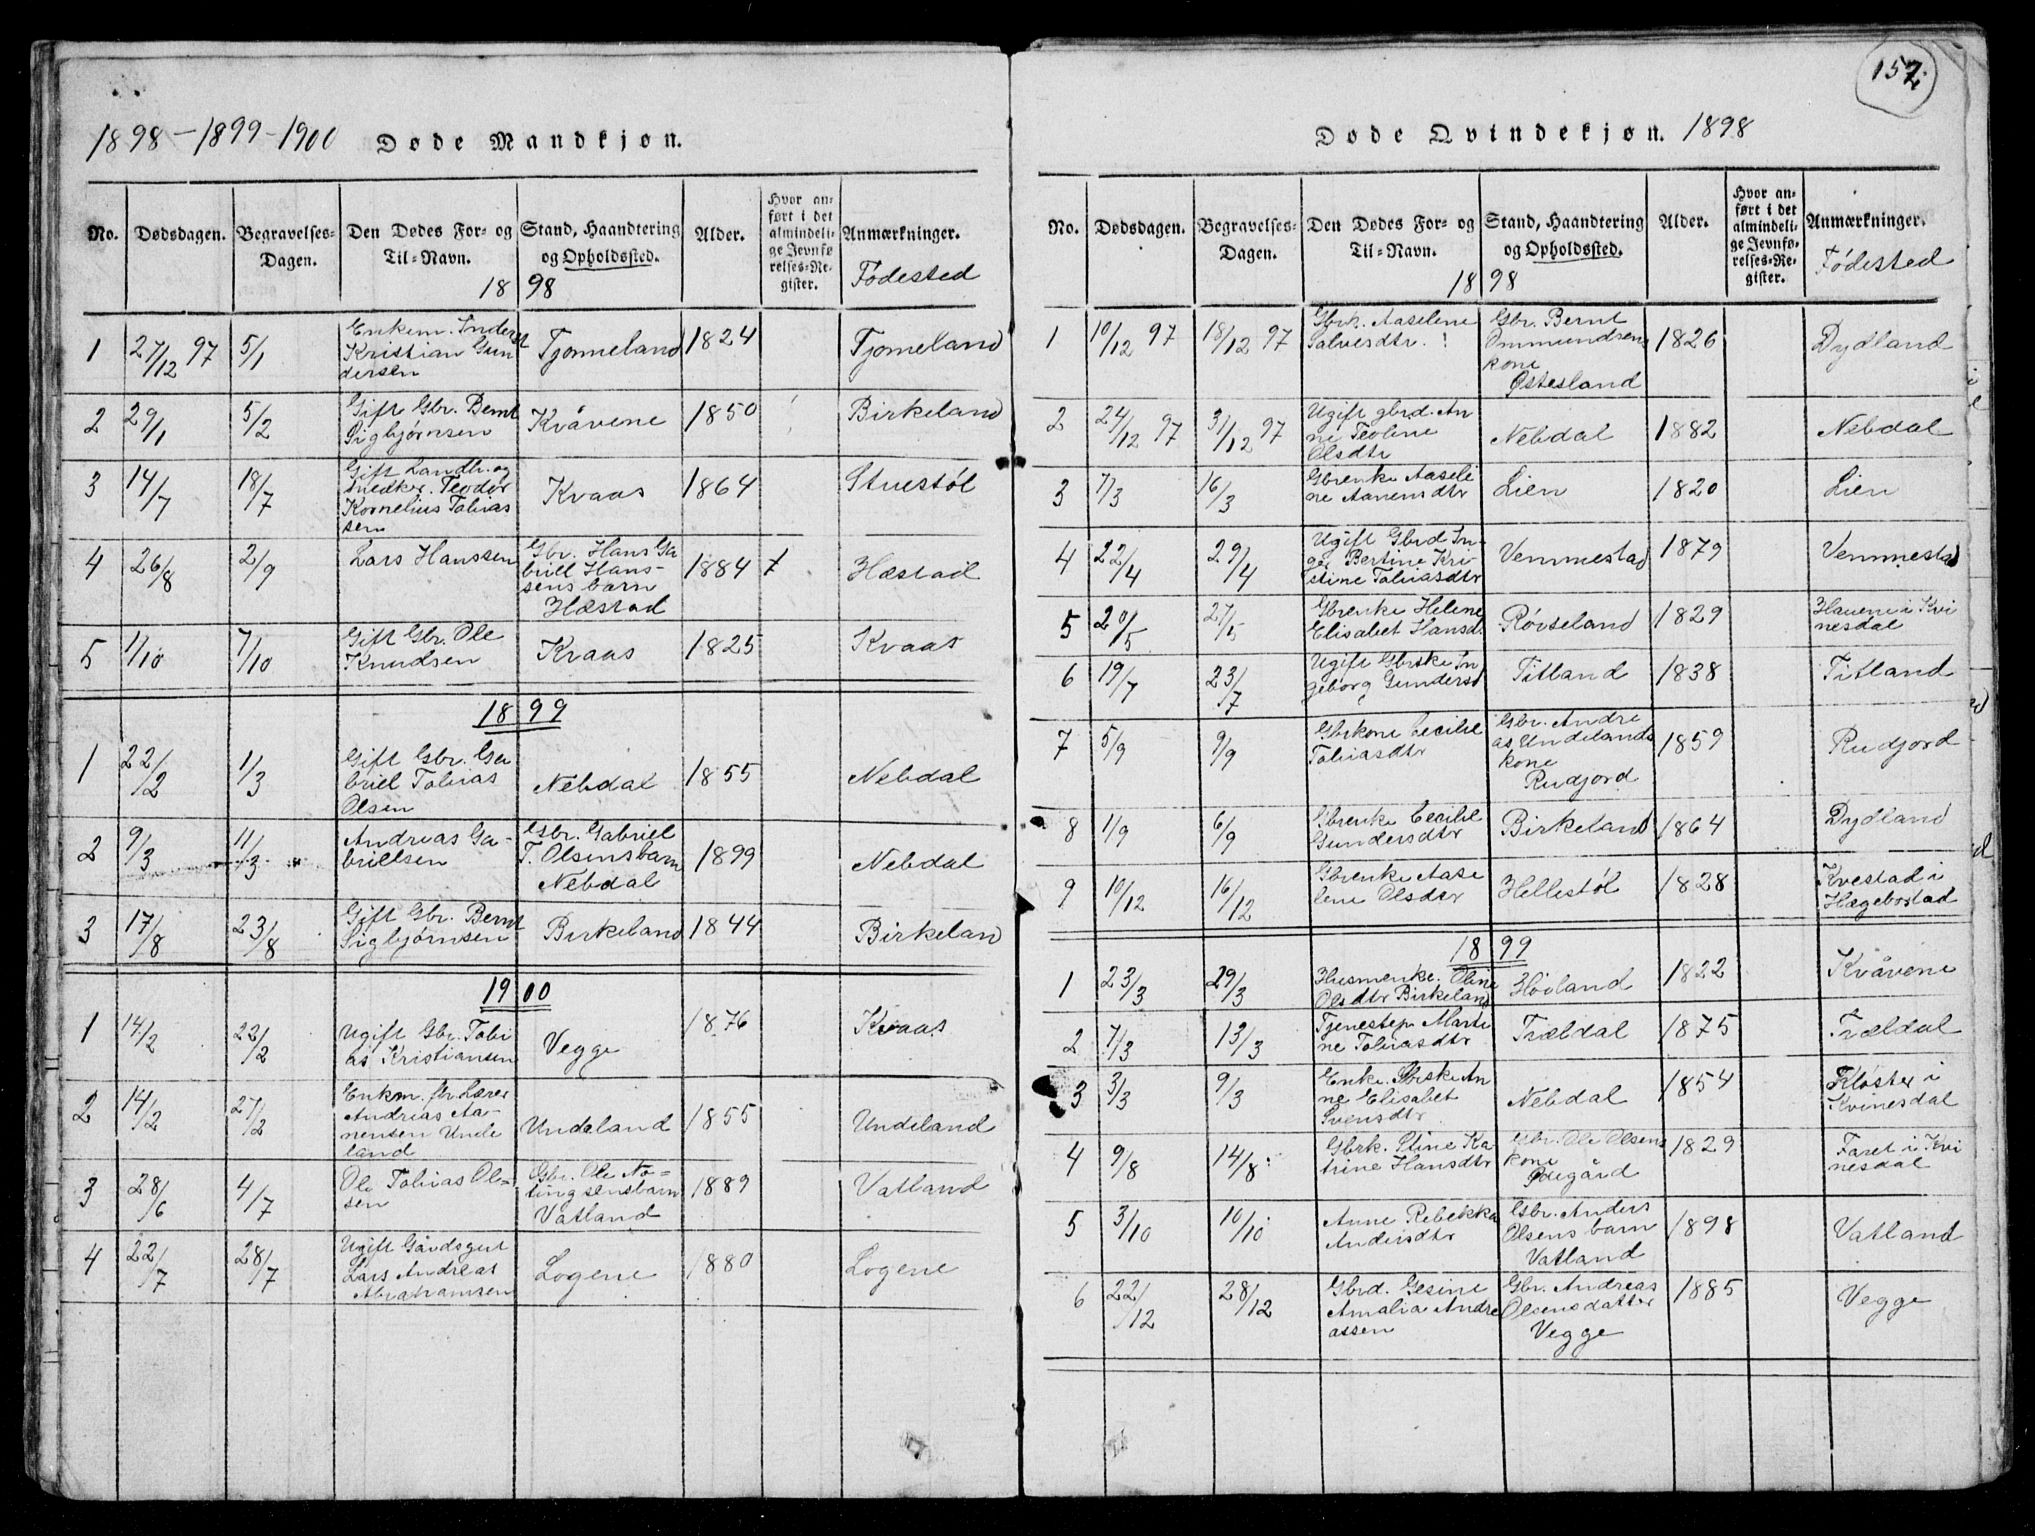 1898-1899-1900 Døde Mandkjøn.
No. Dødsdagen. Begravelses-Dagen. Den Dødes For- og Til-Navn. Stand, Haandtering og Opholdssted. Alder. Hvor anført i det almindelige Jevnførelses-Register. Anmærkninger. Fødested
1898
1 27/12 97 5/1 Enkem. Inderst Kristian Gundersen Tjomeland 1824 Tjomeland
2 29/1 5/2 Gift Gbr. Bernt Sigbjørnsen Kvåvene 1850 Birkeland
3 14/7 18/7 Gift Landh. og Snedker. Teodor Kornelius Tobiassen Kvaas 1864 Stuestøl
4 26/8 2/9 Lars Hanssen Gbr. Hans Gabriel Hanssens barn Hæstad 1884 Hæstad
5 1/10 7/10 Gift Gbr. Ole Knudsen Kvaas 1825 Kvaas
1899
1 22/2 1/3 Gift Gbr. Gabriel Tobias Olsen Nebdal 1855 Nebdal
2 9/3 11/3 Andreas Gabrielsen Gbr. Gabriel T. Olsens barn Nebdal 1899 Nebdal
3 17/8 23/8 Gift Gbr. Bernt Sigbjørnsen Birkeland 1844 Birkeland
1900
1 14/2 22/2 Ugift Gbr. Tobias Kristiansen Vegge 1876 Kvaas
2 14/2 27/2 Enkm. fv. Lærer Andreas Aanensen Undeland Undeland 1855 Undeland
3 28/6 4/7 Ole Tobias Olesen Gbr. Ole Notingsens barn Vatland 1889 Vatland
4 22/7 28/7 Ugift Gårdsgut Lars Andreas Abrahamsen Logene 1880 Logene
152
Døde Qvindekjøn. 1898
No. Dødsdagen. Begravelses-Dagen. Den Dødes For- og Til-Navn. Stand, Haandtering og Opholdssted. Alder. Hvor anført i det almindelige Jevnførelses-Register. Anmærkninger. Fødested
1898
1 10/12 97 18/12 97 Gbrk. Aaselene Salvesdtr. Gbr. Bernt Ommundsens kone Østesland 1826 Dydland
2 24/12 97 31/12 97 Ugift gbrd. Anne Teoline Olsdtr Nebdal 1882 Nebdal
3 7/3 16/3 Gbrenke Aaseline Aanensdtr Lien 1820 Lien
4 22/4 29/4 Ugift Gbrd Inga Bertine Kristine Tobiasdtr Vemmestad 1879 Vemmestad
5 20/5 27/5 Gbrenke Helene Elisabet Hansd. Røvseland 1829 Hauene i Kvinesdal
6 19/7 23/7 Ugift Gbrske Ingeborg Gundersd Titland 1838 Titland
7 5/9 9/9 Gbrkone Cecilie Tobiasdtr Gbr. Andreas Undelands kone Rudjord 1859 Rudjord
8 1/9 6/9 Gbrenke Cecilie Gundersdtr Birkeland 1864 Dydland
9 10/12 16/12 Gbrenke Aaselene Olsdtr Hellestøl 1828 Kvestad i Hægebostad
1899
1 23/3 29/3 Husmenke. Oline Olsdtr Birkeland Høiland 1822 Kvåvene
2 7/3 13/3 Tjenestep. Martine Tobiasdtr Trældal 1875 Trældal
3 3/3 9/3 Enke. Gbrske Anne Elisabet Svensdtr Nebdal 1854 Kloster i Kvinesdal
4 9/8 14/8 Gbrk. Stine Katrine Hansdtr Gbr. Ole Olsens kone Ødegård 1829 Faret i Kvinesdal
5 3/10 10/10 Anne Rebekka Andersdtr Gbr. Anders Olsens barn Vatland 1898 Vatland
6 22/12 28/12 Gbrd. Gesine Amalia Andreassen Gbr. Andreas Olsens datter Vegge 1885 Vegge